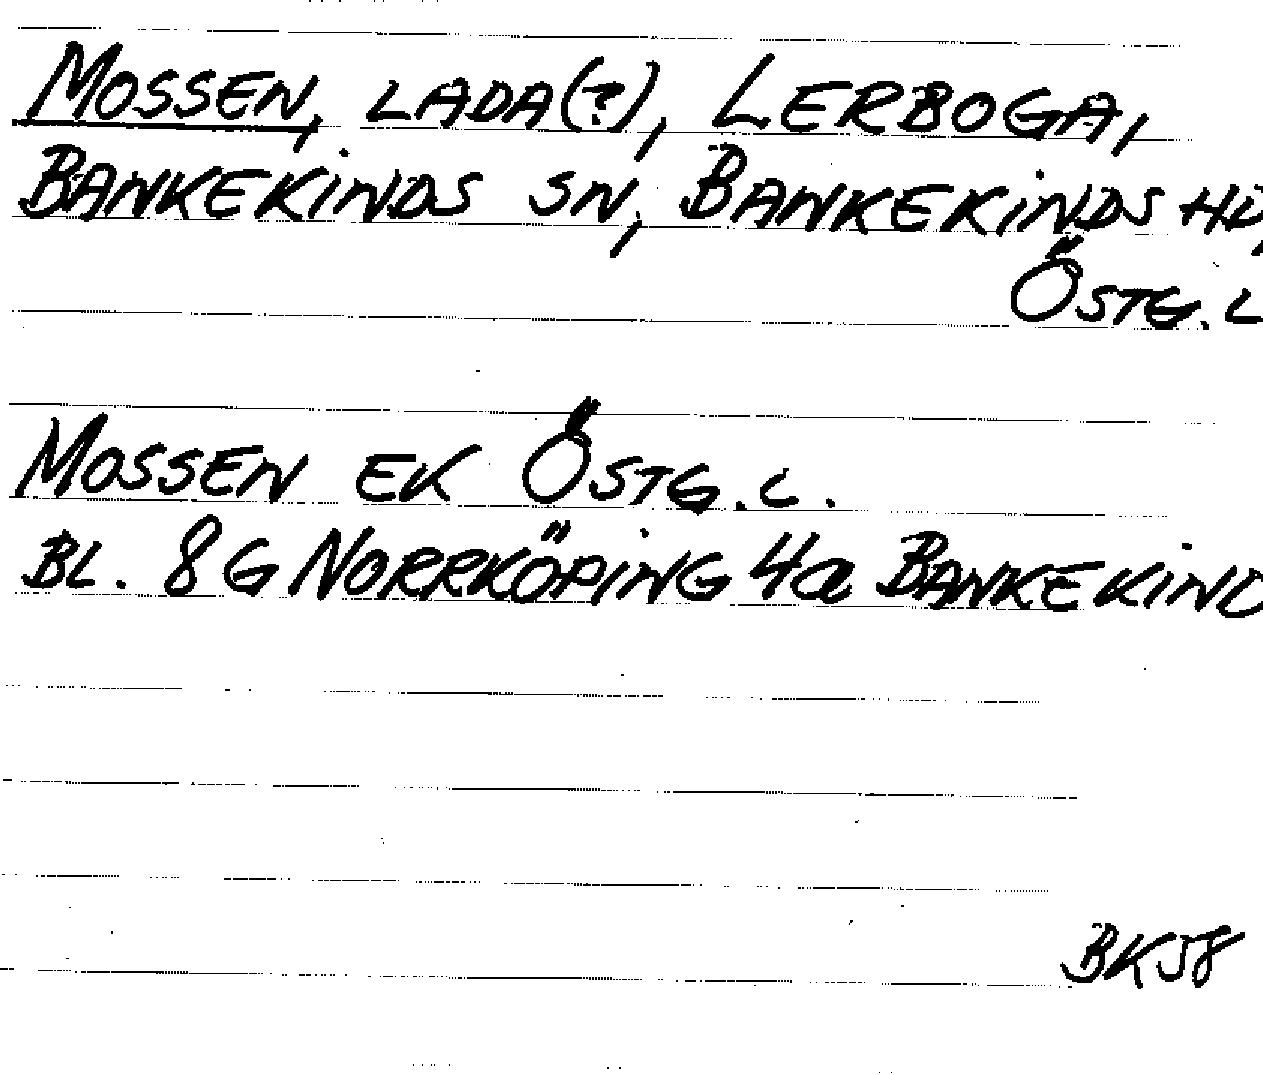 MOSSEN, LADA(?), LERBOGA,
BANKEKINDS SN, BANKEKINDS HD,
ÖSTG. L
MOSSEN EK ÖSTG. L.
BL. 8G NORRKÖPING 4a BANKEKIND
BK58